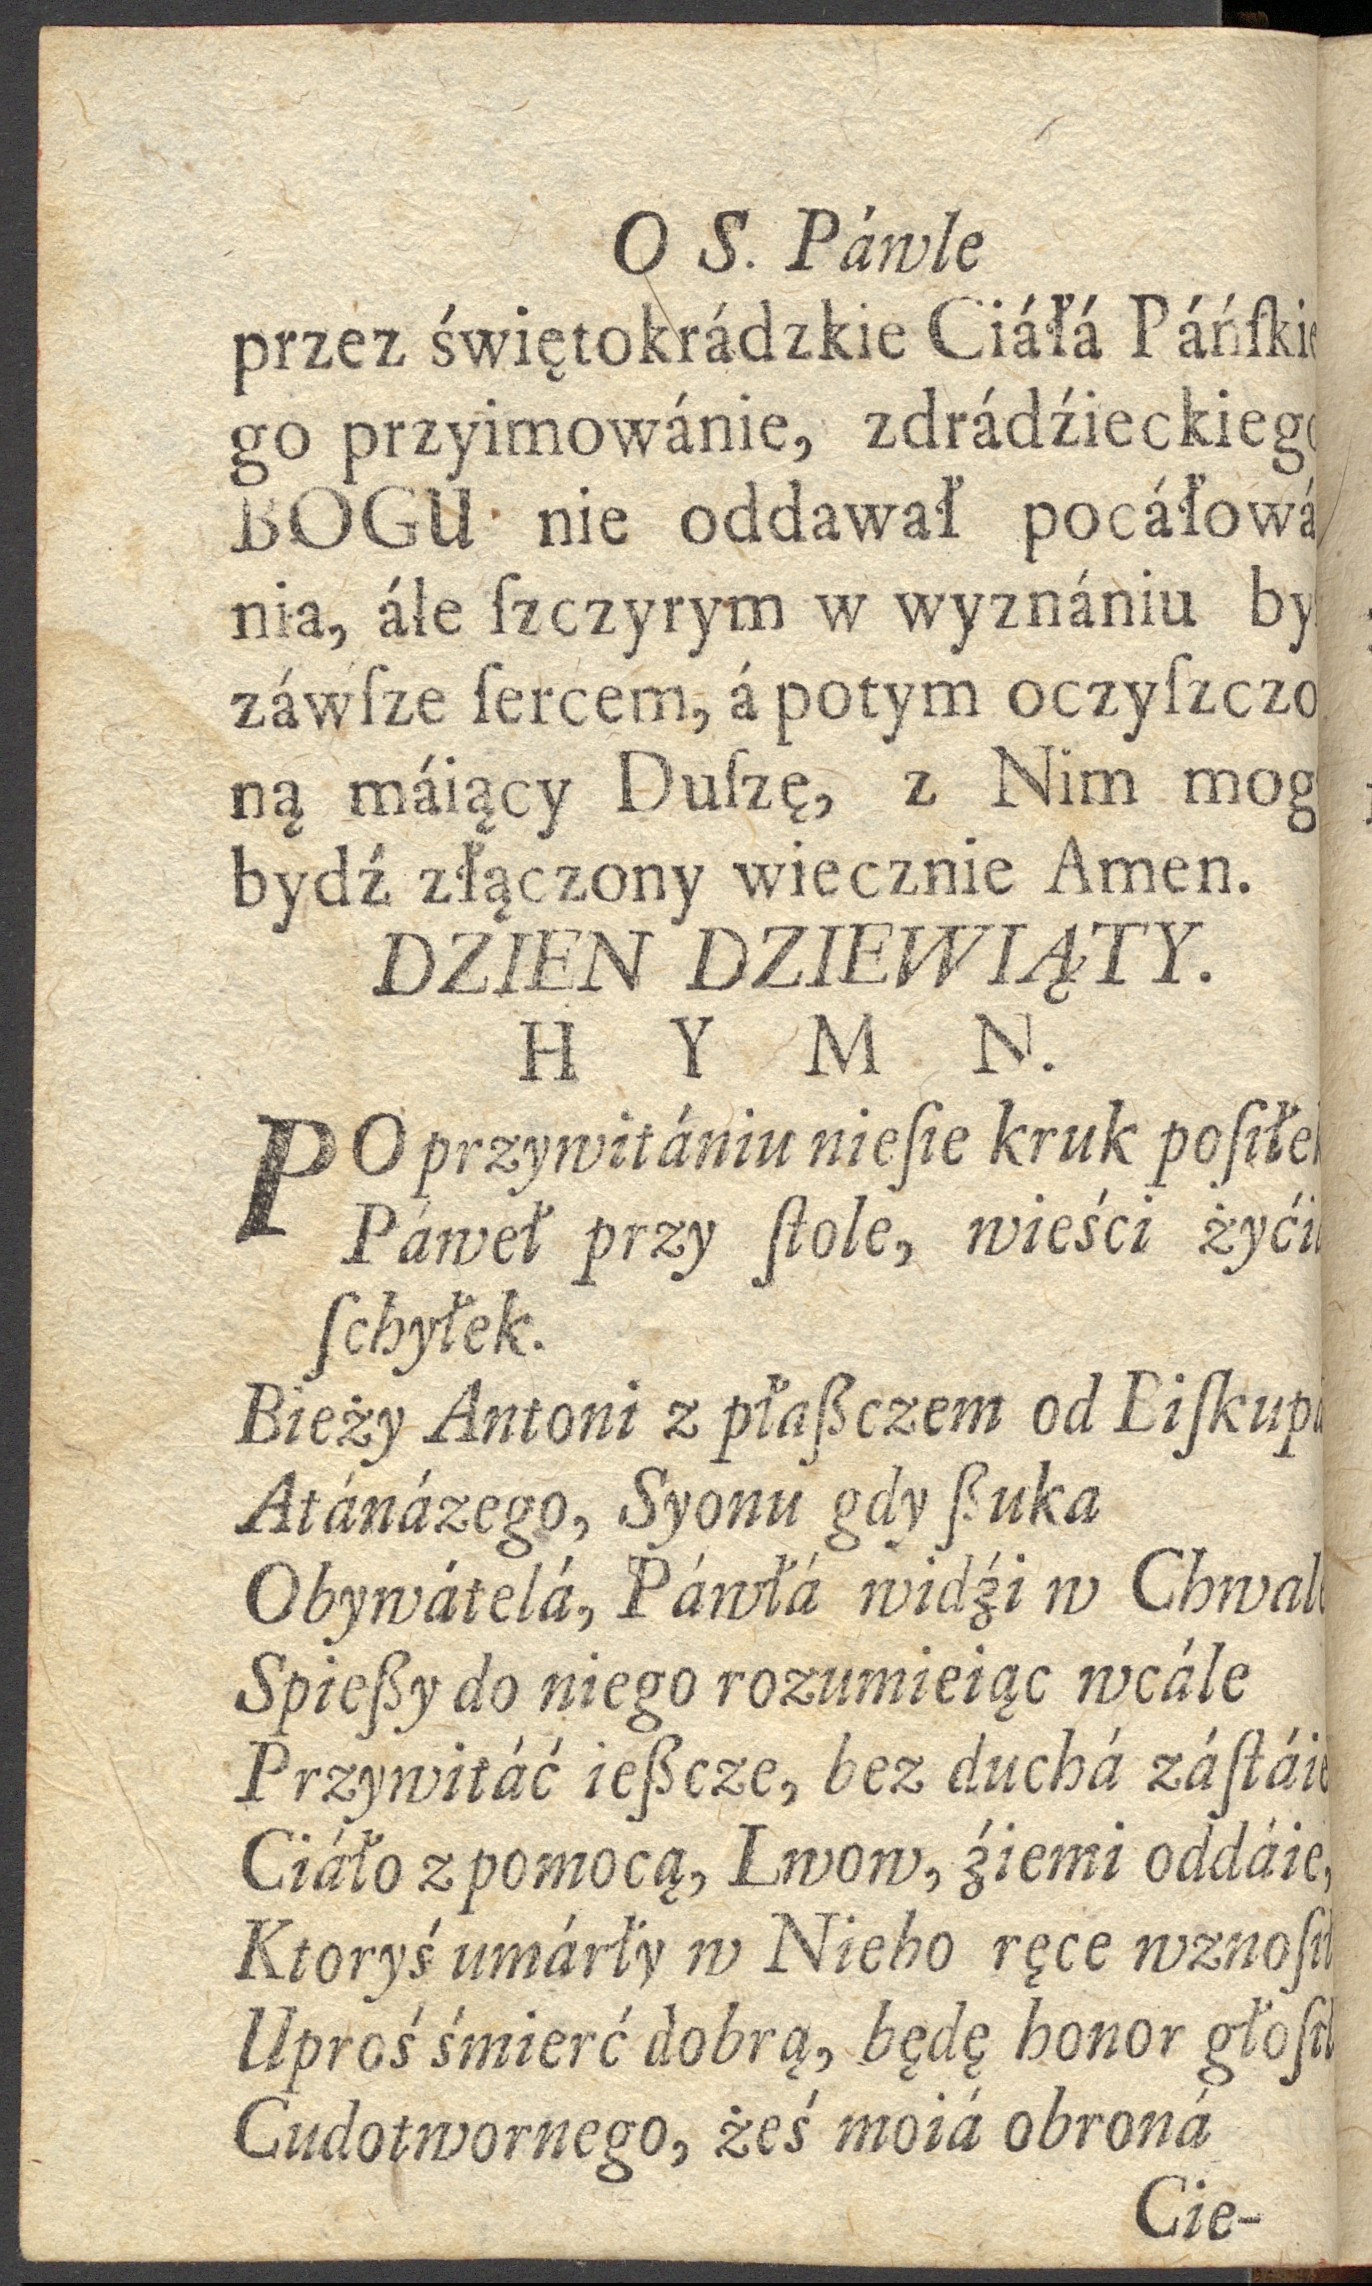 O S. Páwle
przez świętokrádzkie Ciáłá Páńſkie
go przyimowánie, zdrádźieckiego
BOGU nie oddawał pocáłowá
nia, ále ſzczyrym w wyznániu by
záwſze ſercem, á potym oczyſzczo
ną máiący Duſzę, z Nim mog
bydź złączony wiecznie Amen.
DZIEN DZIEWIĄTY.
H Y M N.
PO przywitániu nieſie kruk poſiłek
Páweł przy ſtole, wieści żyćia
ſchyłek.
Bieży Antoni z płaßczem od Biſkupá
Atánázego, Syonu gdy ßuka
Obywátelá, Páwłá widźi w Chwale
Spießy do niego rozumieiąc wcále
Przywitáć ießcze, bez duchá záſtáie
Ciáło z pomocą, Lwow, źiemi oddáie,
Ktoryś umárły w Niebo ręce wznoſił
Uproś śmierć dobrą, będę honor głoſił
Cudotwornego, żeś moiá obroná
Cie-